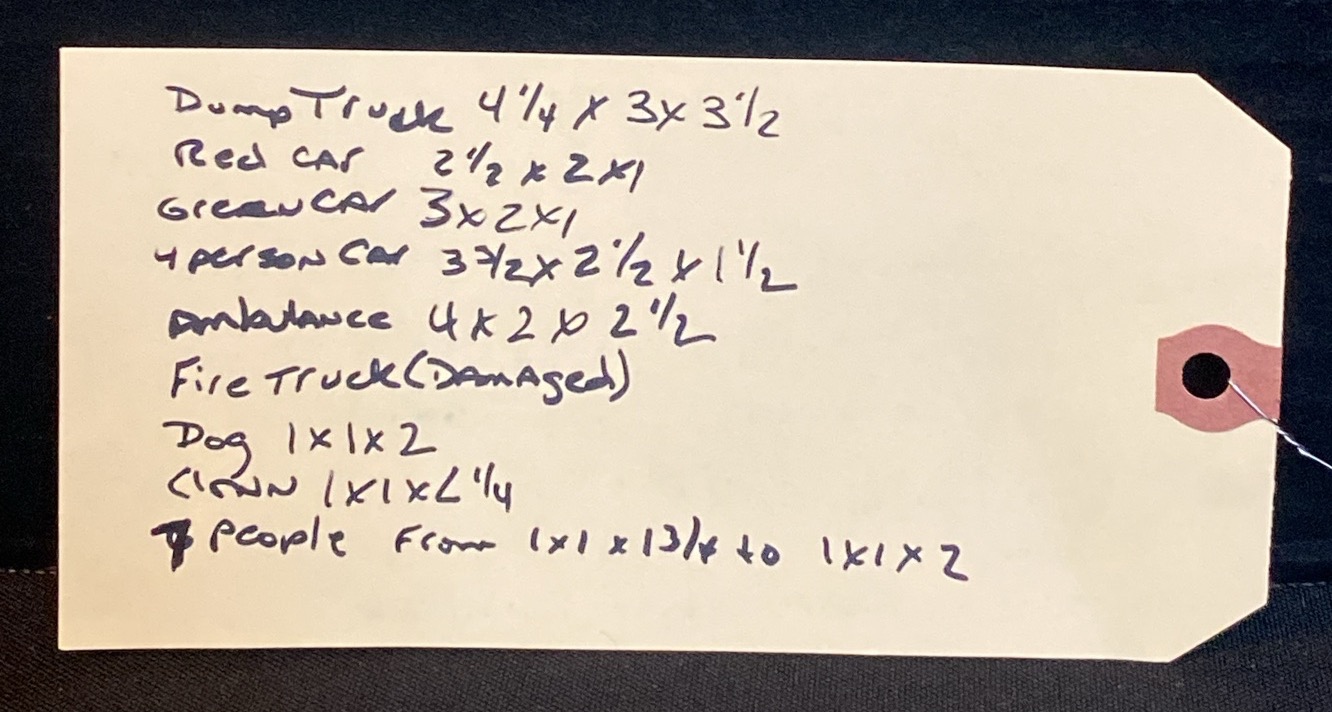 Dump Truck 4 1/4 x 3 x 3 1/2
Red CAr 2 1/2 x 2 x 1
Green CAr 3 x 2 x 1
4 person Car 3 3/2 x 2 1/2 x 1 1/2
Ambulance 4 x 2 x 2 1/2
Fire Truck (DAmAged)
Dog 1 x 1 x 2
Clown 1 x 1 x 2 1/4
people From 1 x 1 x 1 3/4 to 1 x 1 x 2